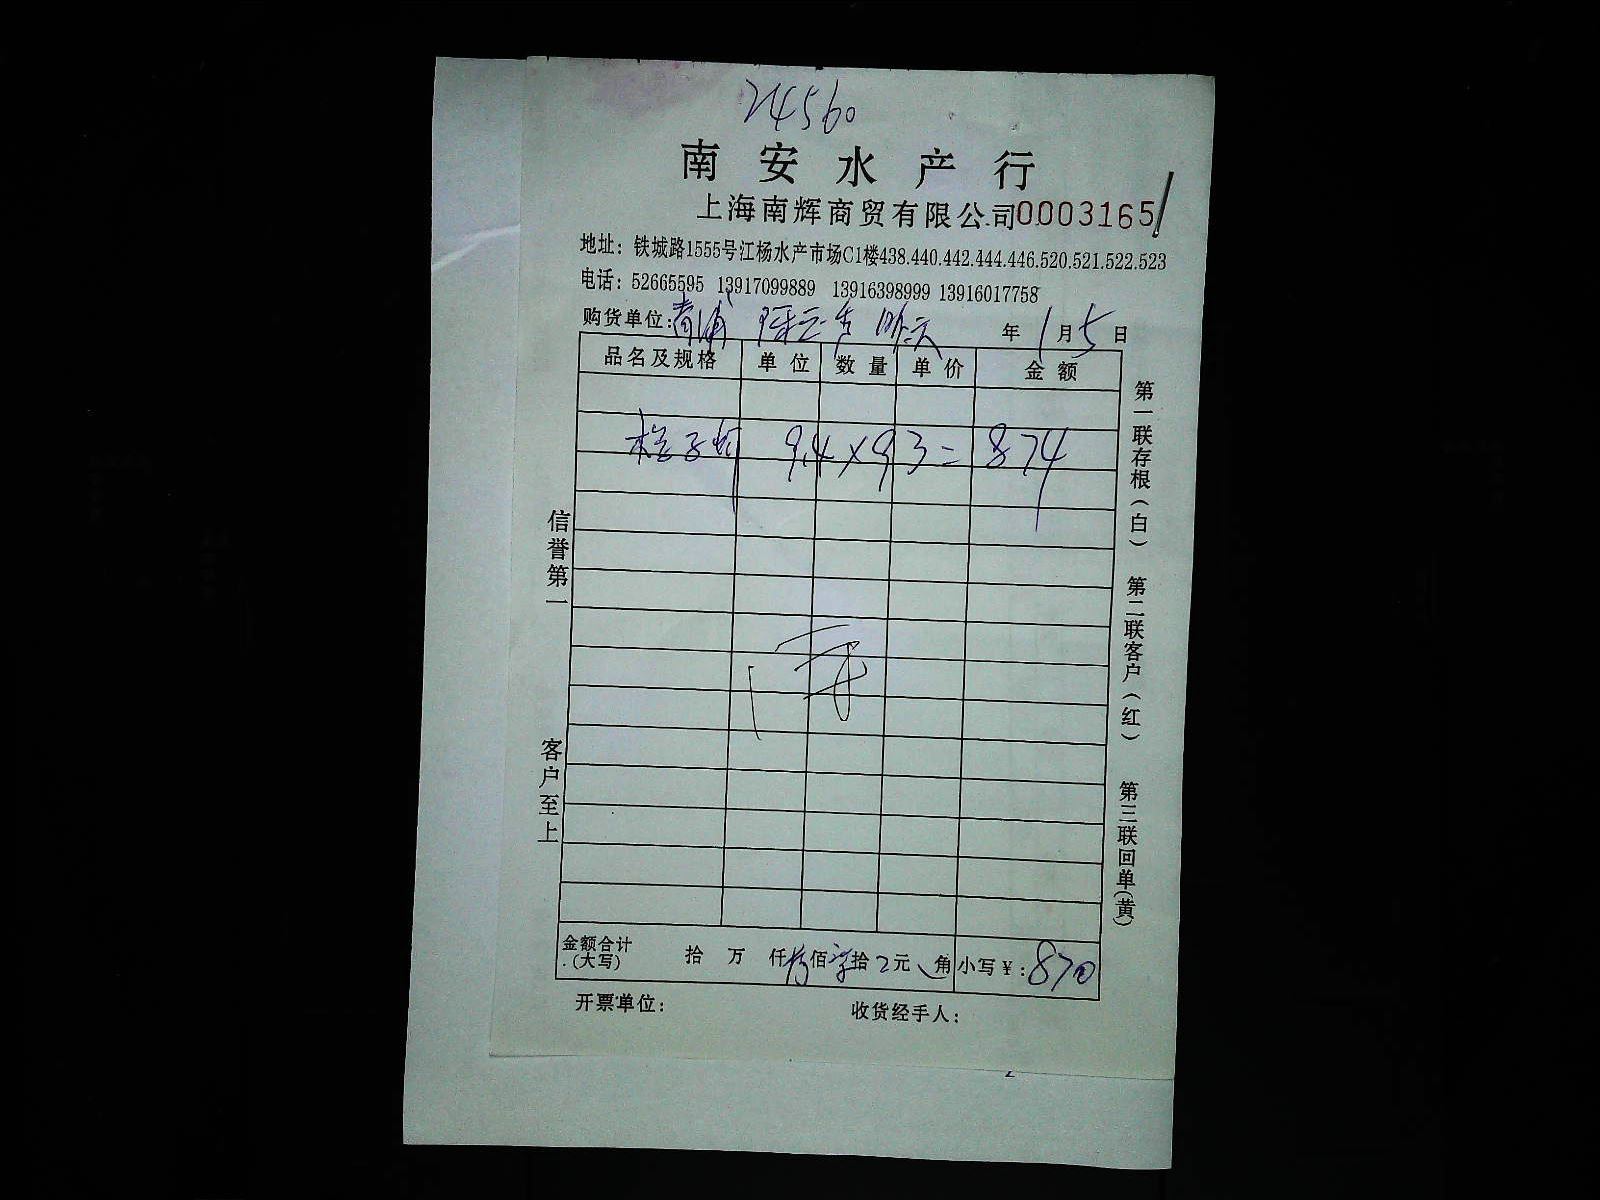 24560
南安水产行
上海南辉商贸有限公司0003165
地址：铁城路1555号江杨水产市场C1楼438.440.442.444.446.520.521.522.523
电话：52665595 13917099889 13916398999 13916017758
购货单位：青浦 昨天 年1月5日
品名及规格 单位 数量 单价 金额
9.4×93=874
金额合计(大写) 拾 万 仟 佰 拾 元 角 小写￥：870
开票单位： 收货经手人：
信誉第一 客户至上
第一联存根(白) 第二联客户(红) 第三联回单(黄)